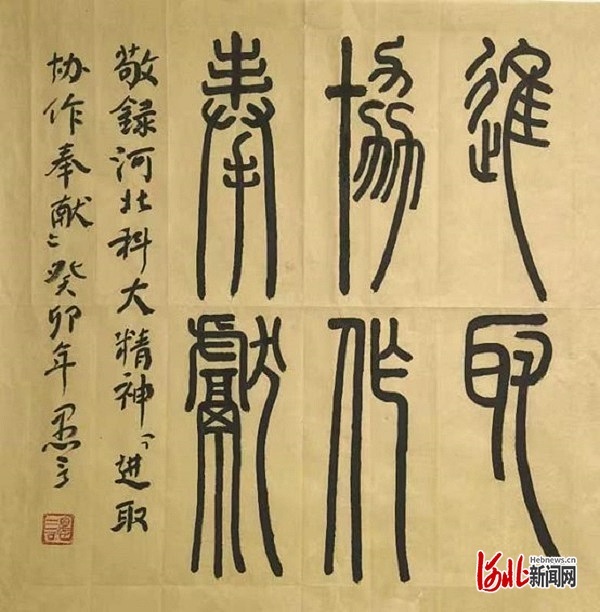 進取
協作
奉獻
敬録河北科大精神「進取
协作奉献」癸卯年
Hebnews.cn
河北新闻网